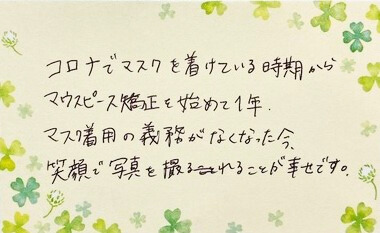 コロナでマスクを着けている時期から
マウスピース矯正を始めて1年.
マスク着用の義務がなくなった今、
笑顔で写真を撮れることが幸せです。